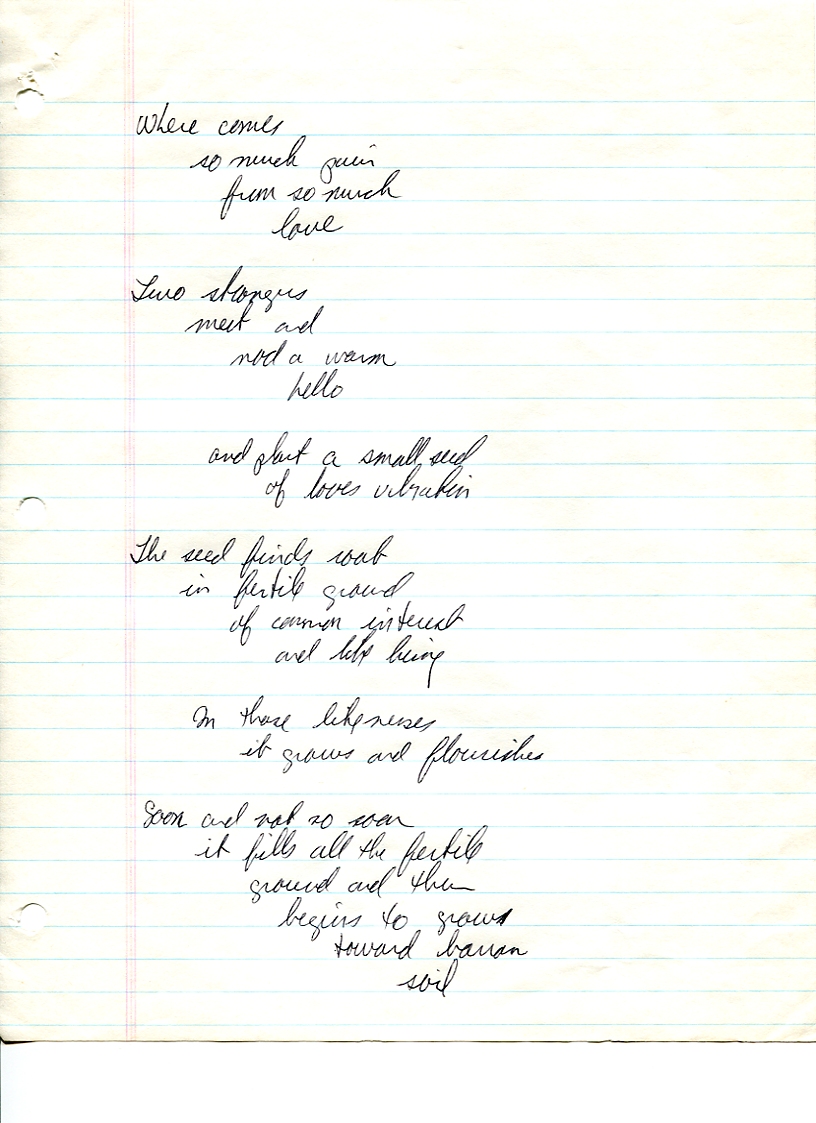 Where comes
so much pain
from so much
love
Two strangers
meet and
nod a warm
hello
and plant a small seed
of loves vibration
The seed finds root
in fertile ground
of common interest
and like being
In those likenesses
it grows and flourishes
Soon and not so soon
it fills all the fertile
ground and then
begins to grows
toward barran
soil